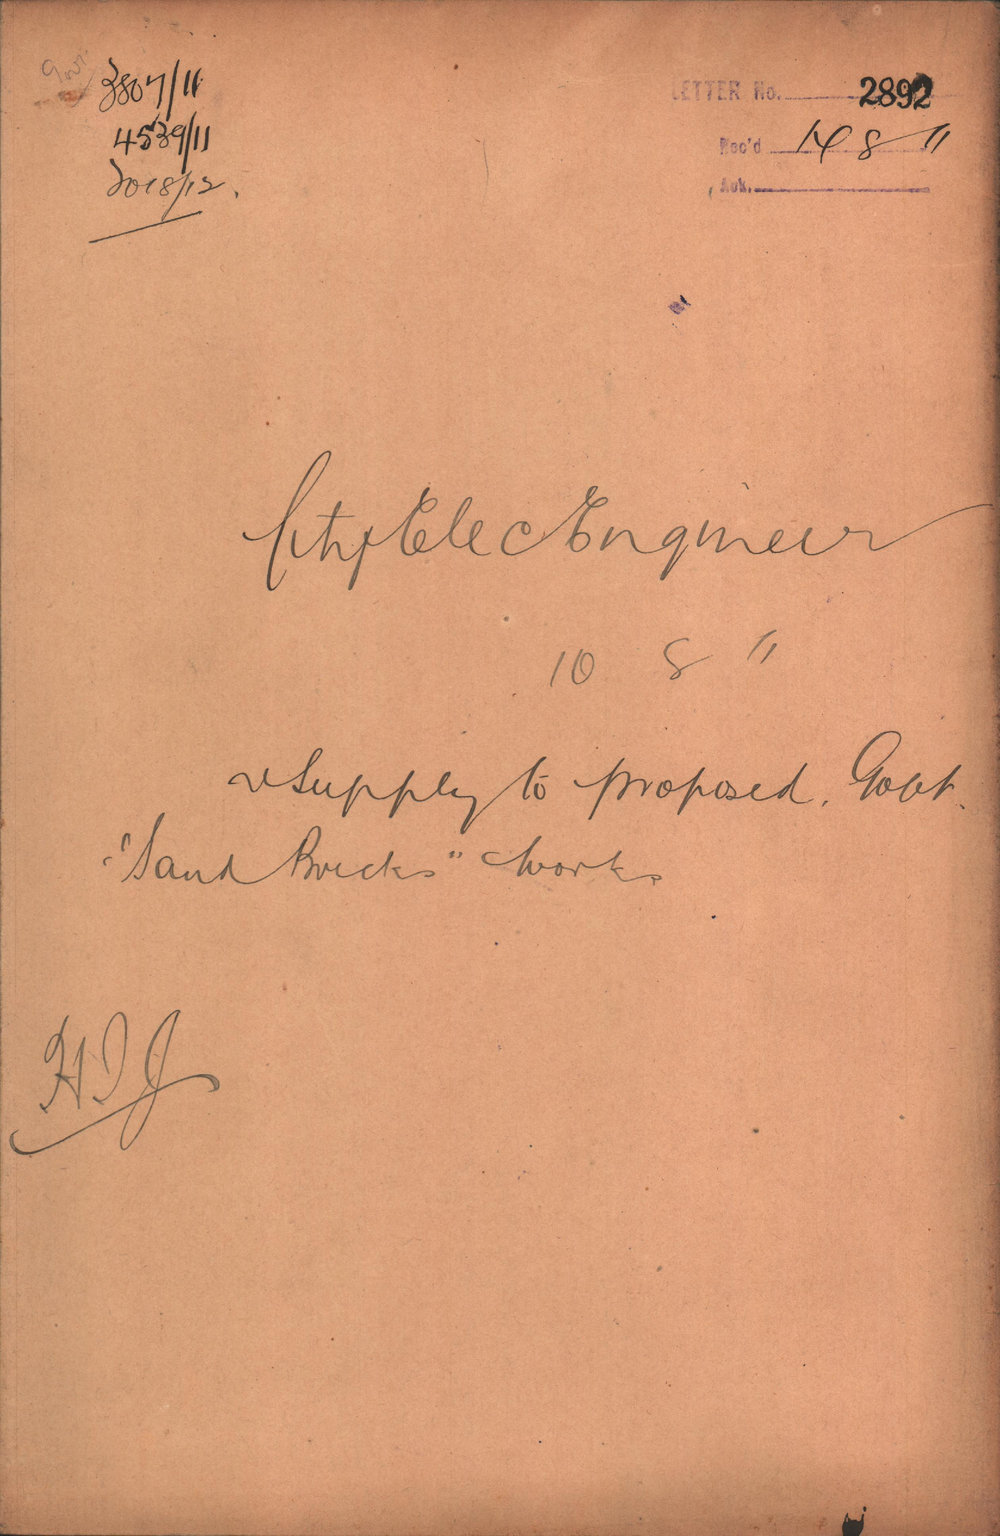 3807/11
4539/11
3018/12.
LETTER No. 2892
Rec'd 14 8 11
Ack.
City Elec Engineer
10 8 11
Supply to proposed Govt.
"Sand Bricks" Works